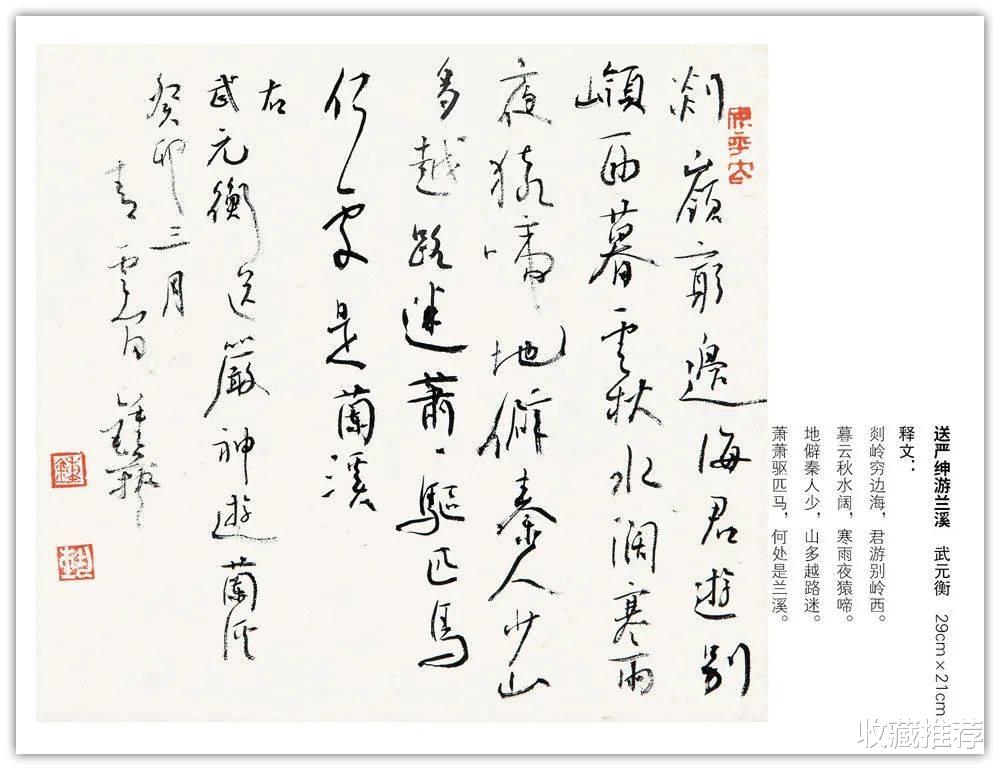 送严绅游兰溪 武元衡 29cm×21cm
释文：
剡岭穷边海，君游别岭西。
暮云秋水阔，寒雨夜猿啼。
地僻秦人少，山多越路迷。
萧萧驱匹马，何处是兰溪。
剡嶺窮邊海君遊別
嶺西暮雲秋水闊寒雨
夜猿啼地僻秦人少山
多越路迷蕭、驅匹馬
何處是蘭溪
右
武元衡送嚴神遊蘭溪
癸卯三月
青雲
收藏推荐